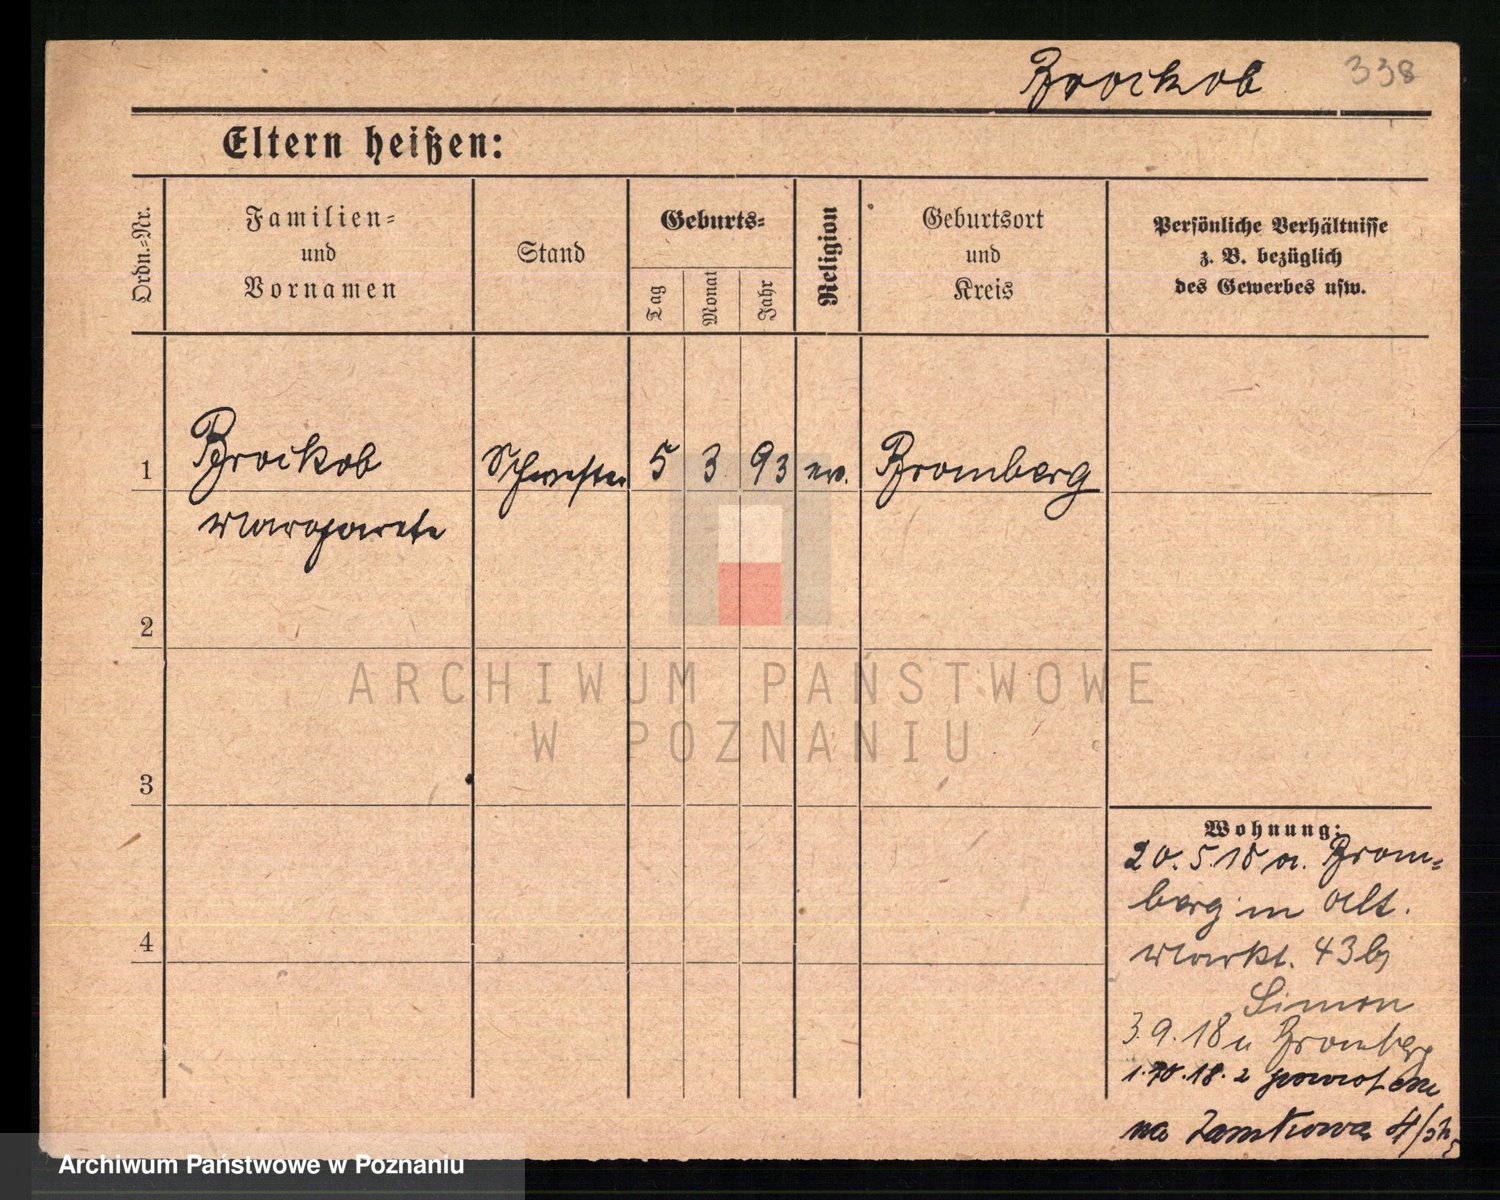 Brockob 338
Eltern heißen:
Ordn.-Nr.
Familien-
und
Vornamen
Stand
Geburts-
Tag
Monat
Jahr
Religion
Geburtsort
und
Kreis
Persönliche Verhältnisse
z. B. bezüglich
des Gewerbes usw.
1 Brockob Schwester 5 3 93 ev. Bromberg
Margarete
2
3
4
Wohnung:
20.5.18 a. Brom-
berg in Alt.
Markt. 43 b
Simon
3.9.18 n Bromberg
1.10.18. z powrotem
na Zamkowa 4/
ARCHIWUM PAŃSTWOWE
W POZNANIU
Archiwum Państwowe w Poznaniu